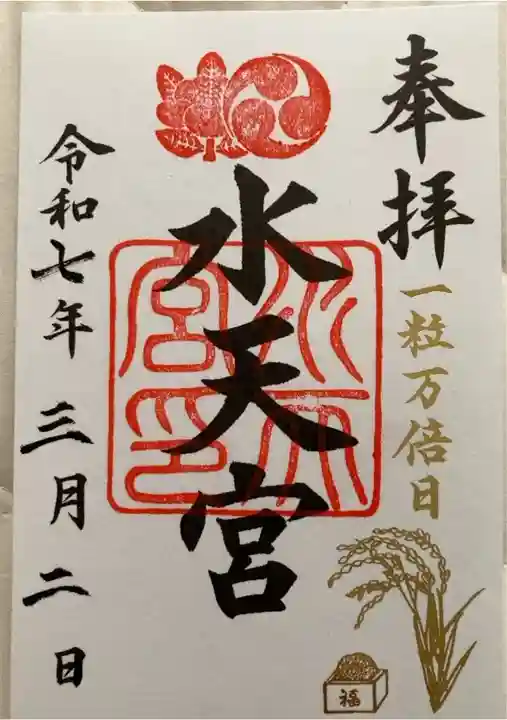 奉拝
一粒万倍日
水天宮
水天宮印
令和七年三月二日
福